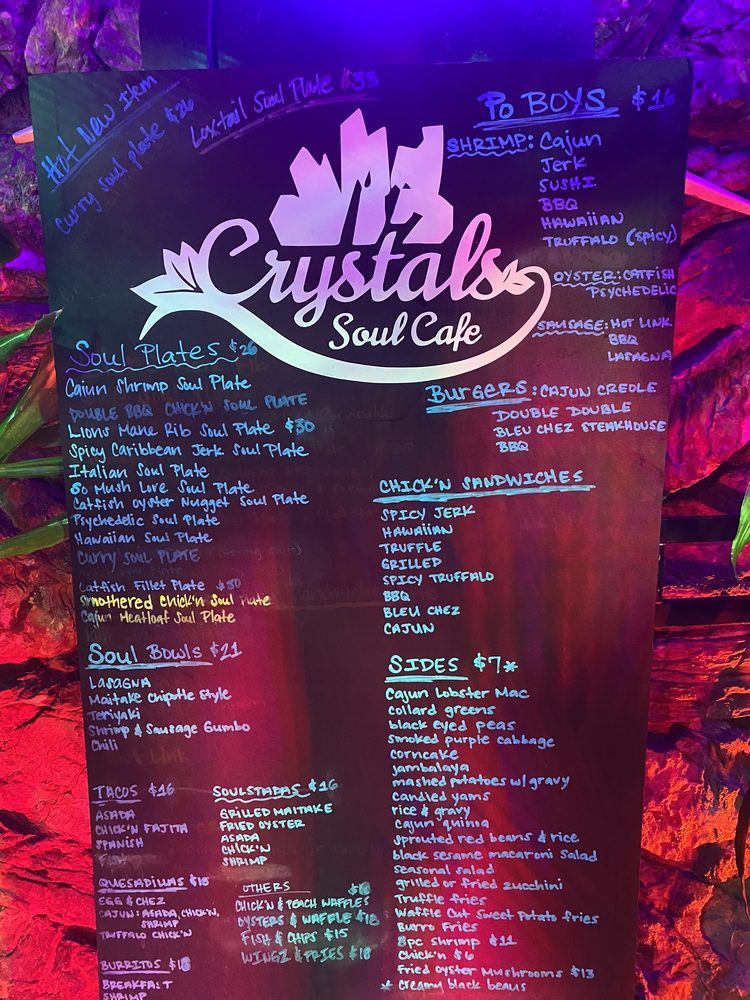 Hot New Item
Curry soul plate $26
Loxtail Soul Plate $33
Crystals
Soul Cafe
Po BOYS $16
SHRIMP: Cajun
Jerk
SUSHI
BBQ
HAWAIIAN
TRUFFALO (spicy)
OYSTER: CATFISH
PSYCHEDELIC
SAUSAGE: HOT LINK
BBQ
LASAGNA
Burgers: CAJUN CREOLE
DOUBLE DOUBLE
BLEU CHEZ STEAKHOUSE
BBQ
CHICK'N SANDWICHES
SPICY JERK
HAWAIIAN
TRUFFLE
GRILLED
SPICY TRUFFALO
BBQ
BLEU CHEZ
CAJUN
Soul Plates $26
Cajun Shrimp Soul Plate
DOUBLE BBQ CHICK'N SOUL PLATE
Lions Mane Rib Soul Plate $30
Spicy Caribbean Jerk Soul Plate
Italian Soul Plate
So Mush Love Soul Plate
Catfish Oyster Nugget Soul Plate
Psychedelic Soul Plate
Hawaiian Soul Plate
CURRY SOUL PLATE
Catfish Fillet Plate $30
Smothered Chick'n Soul Plate
Cajun Meatloaf Soul Plate
Soul Bowls $21
LASAGNA
Maitake Chipotle Style
Teriyaki
Shrimp & Sausage Gumbo
Chili
TACOS $16
ASADA
CHICK'N FAJITA
SPANISH
FISH
SOULSTADAS $16
GRILLED MAITAKE
FRIED OYSTER
ASADA
CHICK'N
SHRIMP
QUESADILLAS
EGG & CHEZ
CAJUN: ASADA, CHICK'N,
SHRIMP
TRUFFALO CHICK'N
OTHERS
CHICK'N & PEACH WAFFLES
OYSTERS & WAFFLE $18
FISH & CHIPS $15
WINGZ & FRIES $18
BURRITOS
BREAKFAST
SHRIMP
SIDES $7*
Cajun Lobster Mac
collard greens
black eyed peas
smoked purple cabbage
corncake
jambalaya
mashed potatoes w/ gravy
candied yams
rice & gravy
cajun quinoa
sprouted red beans & rice
black sesame macaroni salad
seasonal salad
grilled or fried zucchini
Truffle fries
Waffle Cut Sweet Potato fries
Burro Fries
8pc shrimp $11
chick'n $6
Fried oyster Mushrooms $13
* Creamy black beans